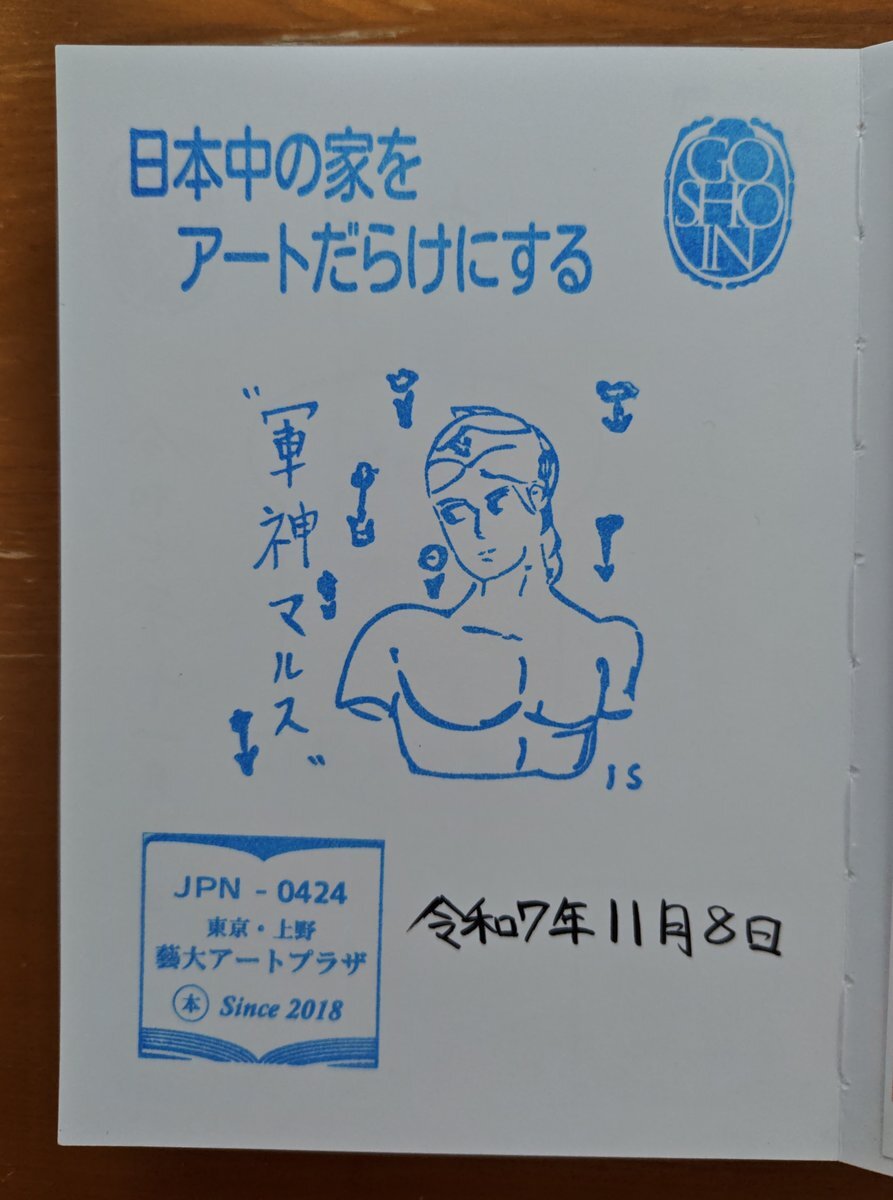 日本中の家を
アートだらけにする
GO
SHO
IN
"軍神マルス"
IS
JPN - 0424
東京・上野
藝大アートプラザ
本 Since 2018
令和7年11月8日